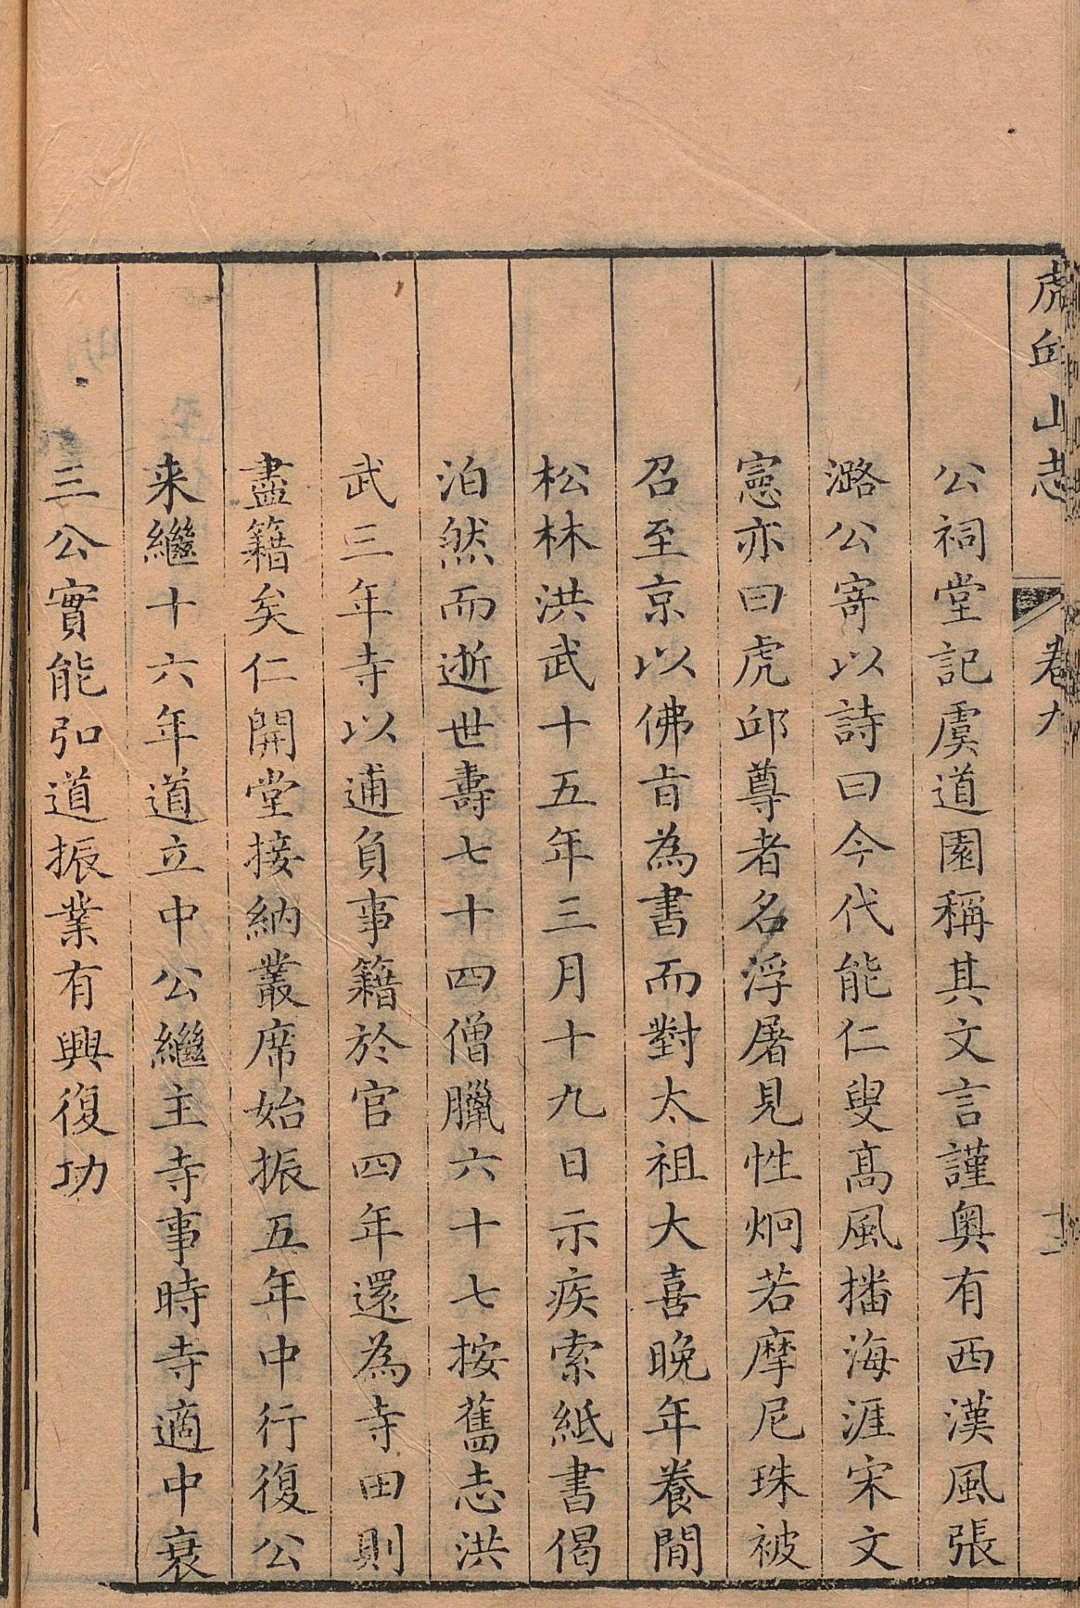 虎丘山志
卷九
十一
公祠堂記虞道園稱其文言謹奧有西漢風張
潞公寄以詩曰今代能仁叟高風播海涯宋文
憲亦曰虎邱尊者名浮屠見性炯若摩尼珠被
召至京以佛旨為書而對太祖大喜晚年養閒
松林洪武十五年三月十九日示疾索紙書偈
泊然而逝世壽七十四僧臘六十七按舊志洪
武三年寺以逋負事籍於官四年還為寺田則
盡籍矣仁開堂接納叢席始振五年中行復公
来繼十六年道立中公繼主寺事時寺適中衰
三公實能弘道振業有興復功